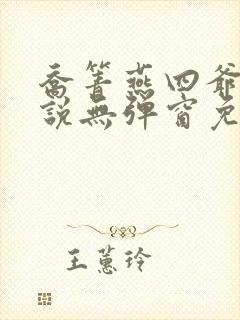 喬箐燕四爺
說無彈窗免
王蕙玲